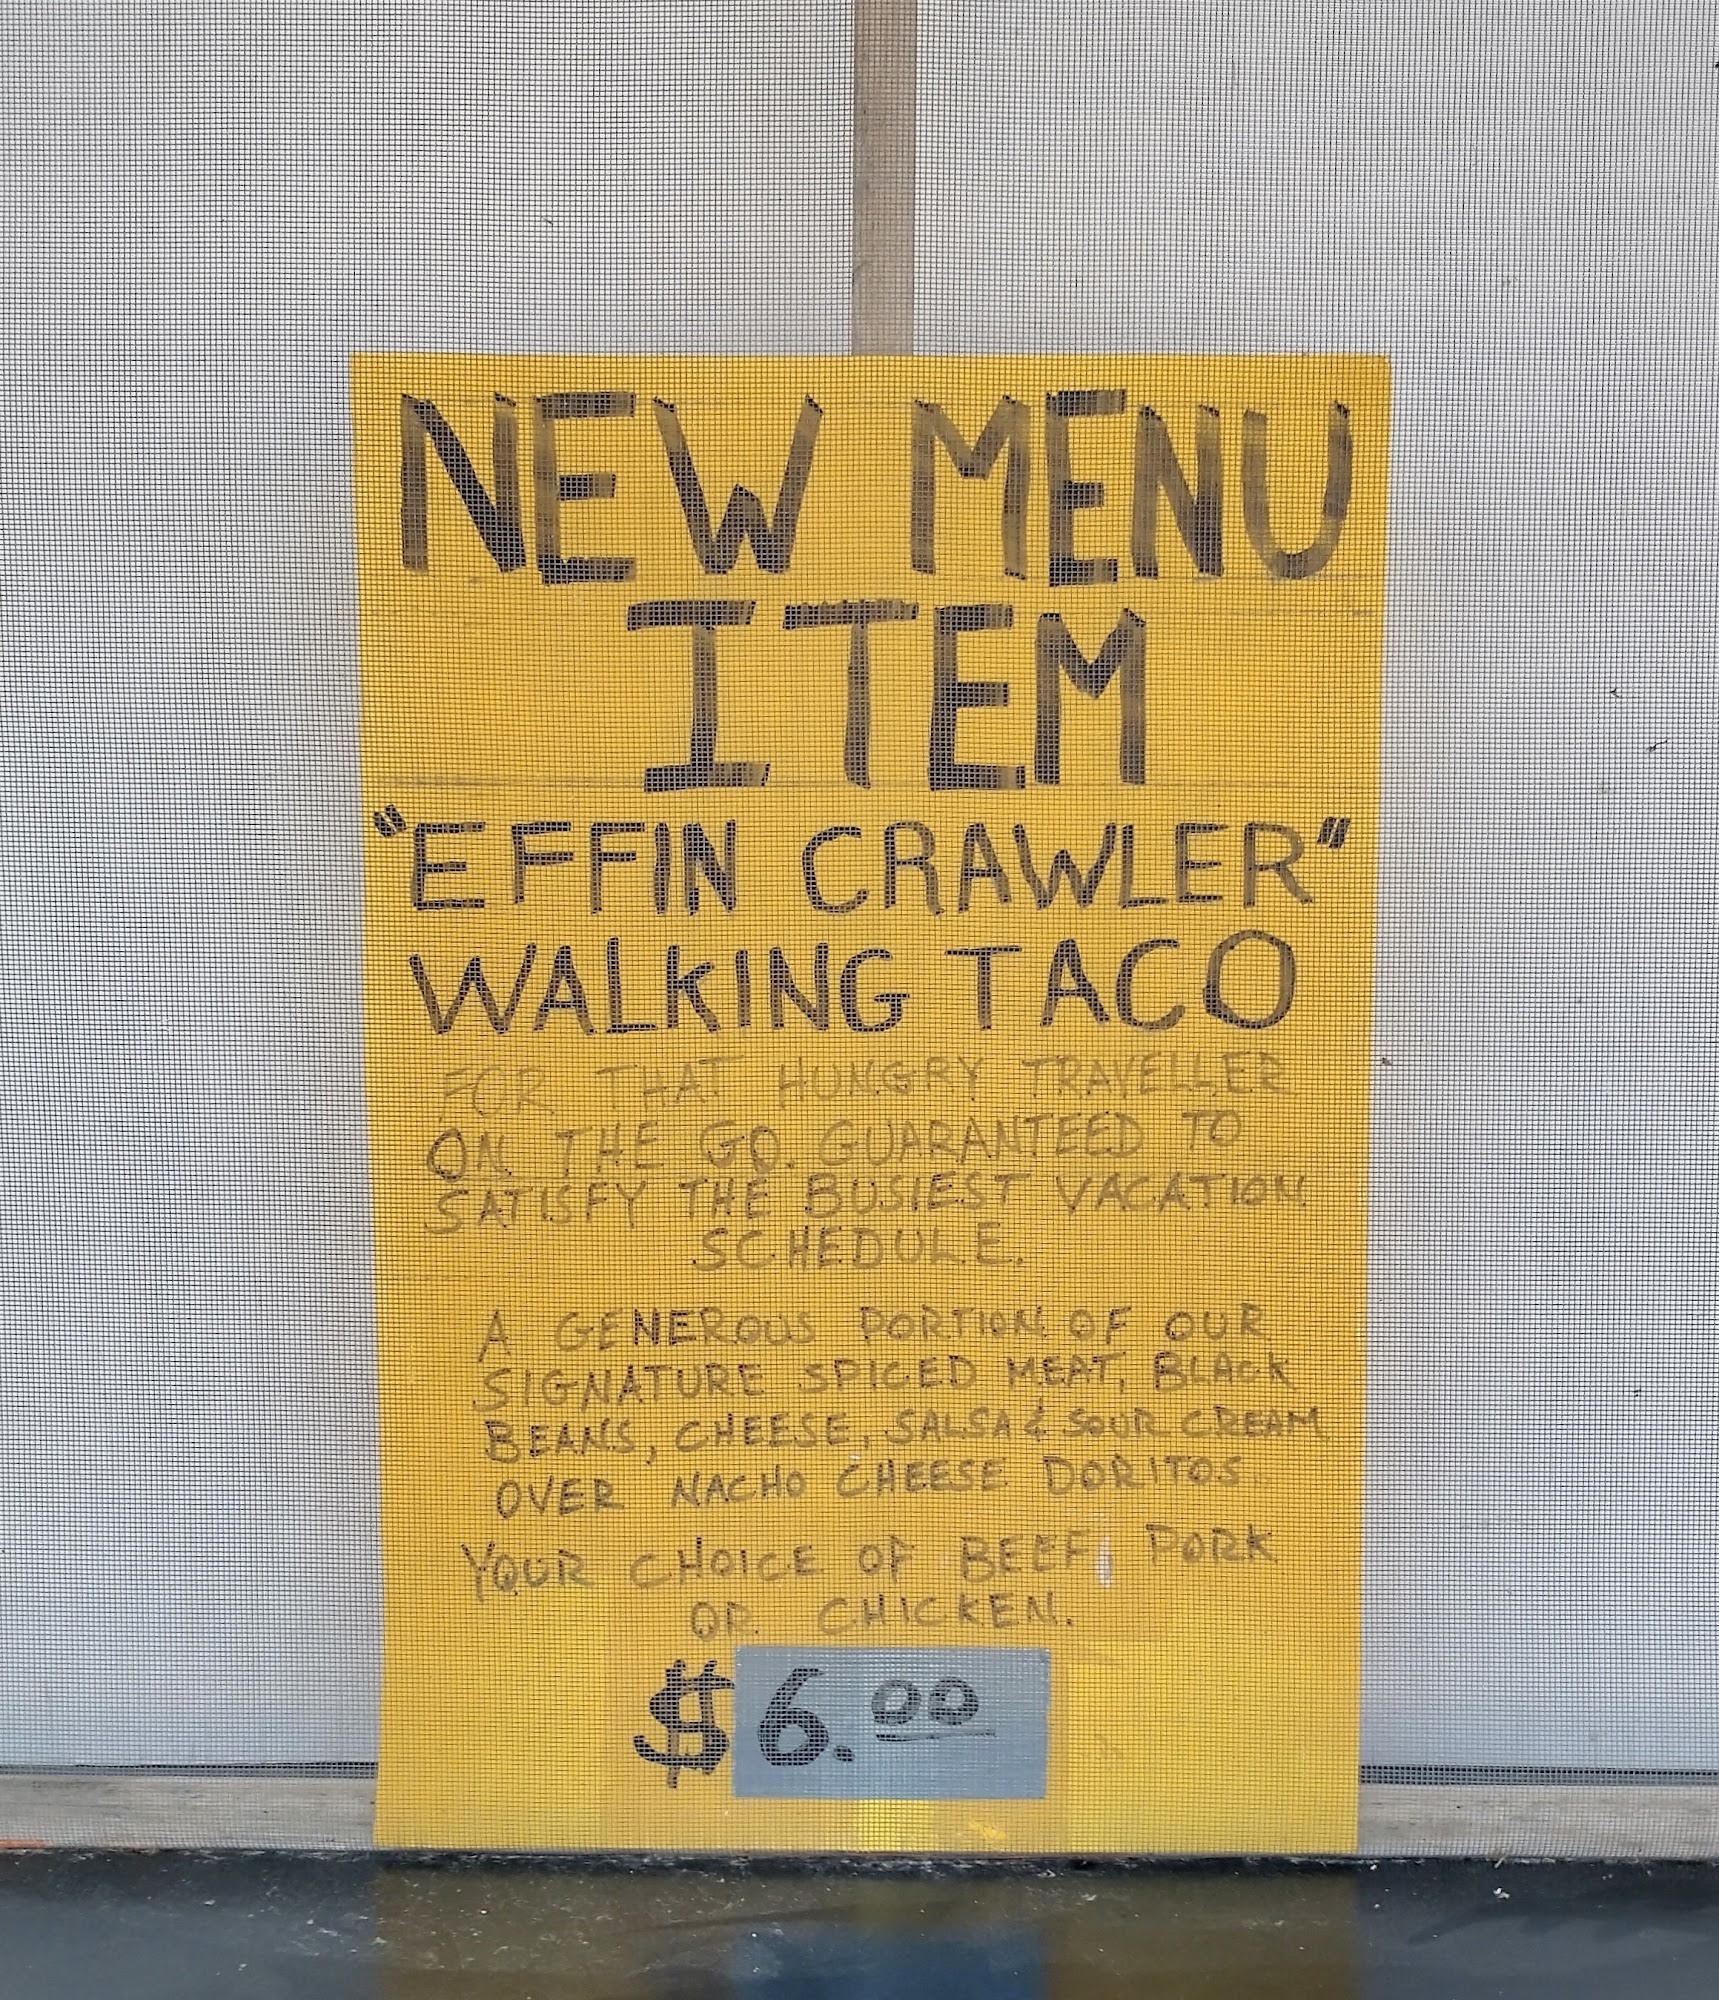 NEW MENU
ITEM
"EFFIN CRAWLER"
WALKING TACO
FOR THAT HUNGRY TRAVELLER
ON THE GO. GUARANTEED TO
SATISFY THE BUSIEST VACATION
SCHEDULE.
A GENEROUS PORTION OF OUR
SIGNATURE SPICED MEAT, BLACK
BEANS, CHEESE, SALSA & SOUR CREAM
OVER NACHO CHEESE DORITOS.
YOUR CHOICE OF BEEF, PORK
OR CHICKEN.
$6.00